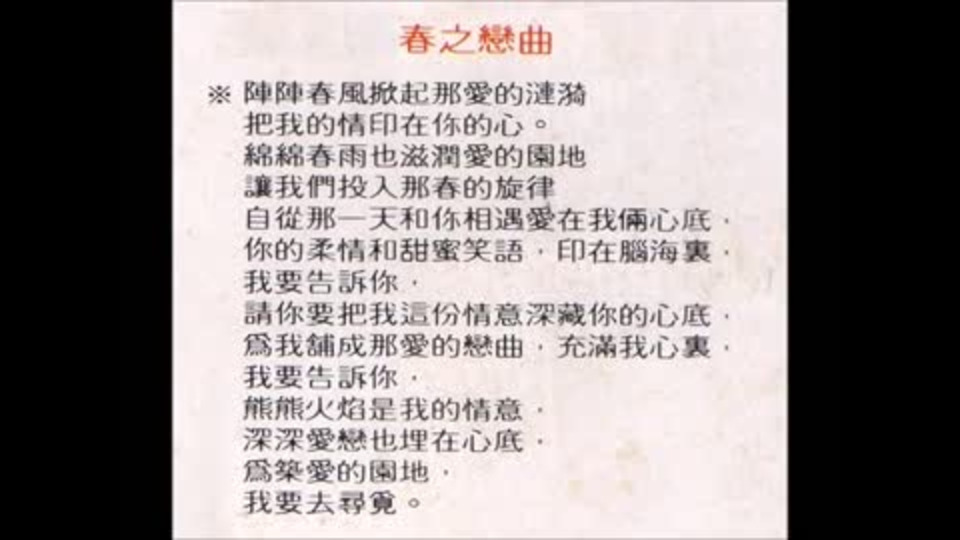 春之戀曲
※ 陣陣春風掀起那愛的漣漪
把我的情印在你的心。
綿綿春雨也滋潤愛的園地
讓我們投入那春的旋律
自從那一天和你相遇愛在我倆心底，
你的柔情和甜蜜笑語，印在腦海裏，
我要告訴你，
請你要把我這份情意深藏你的心底，
爲我舖成那愛的戀曲，充滿我心裏，
我要告訴你，
熊熊火焰是我的情意，
深深愛戀也埋在心底，
爲築愛的園地，
我要去尋覓。